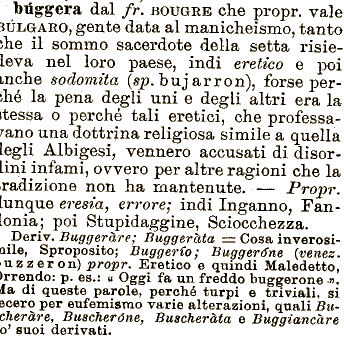 búggera dal fr. BOUGRE che propr. vale
BÚLGARO, gente data al manicheismo, tanto
che il sommo sacerdote della setta risie-
deva nel loro paese, indi eretico e poi
anche sodomita (sp. bujarron), forse per-
ché la pena degli uni e degli altri era la
stessa o perché tali eretici, che professa-
vano una dottrina religiosa simile a quella
degli Albigesi, vennero accusati di disor-
dini infami, ovvero per altre ragioni che la
tradizione non ha mantenute. — Propr.
dunque eresia, errore; indi Inganno, Fan-
donia; poi Stupidaggine, Sciocchezza.
Deriv. Buggeràre; Buggeràta = Cosa inverosi-
mile, Sproposito; Buggerío; Buggeróne (venez.
buzzeron) propr. Eretico e quindi Maledetto,
Orrendo: p. es.: « Oggi fa un freddo buggerone ».
Ma di queste parole, perché turpi e triviali, si
fecero per eufemismo varie alterazioni, quali Bu-
scheràre, Buscheróne, Buscheràta e Buggiancàre
co' suoi derivati.